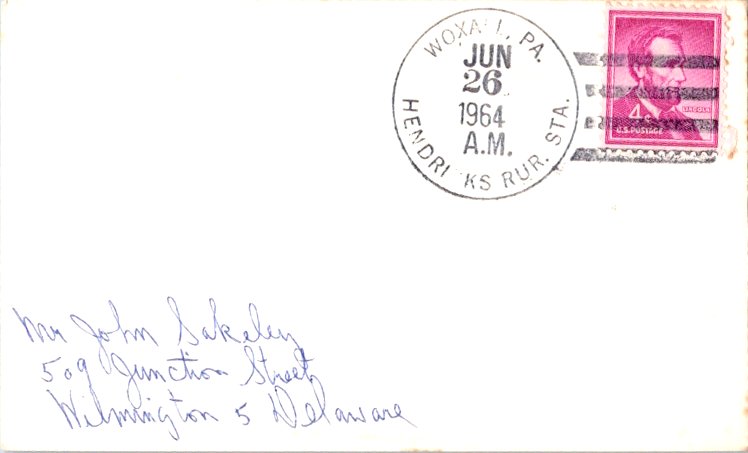 WOXALL, PA.
JUN
26
1964
A.M.
HENDRICKS RUR. STA.
LINCOLN
4¢
U.S. POSTAGE
Mr John Sakeley
509 Junction Street
Wilmington 5 Delaware